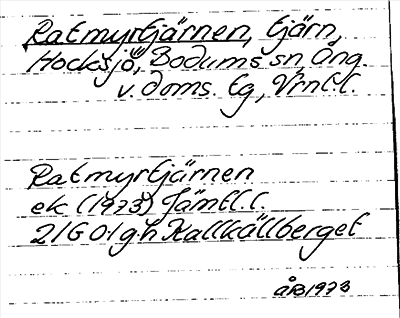 Ratmyrtjärnen, tjärn,
Hocksjö, Bodums sn, Ång.
v. doms. tg, Vrnl.l.
Ratmyrtjärnen
ek (1973) Jämtl.l.
21G 0-1 gh Kallkällberget
ÅB 1973